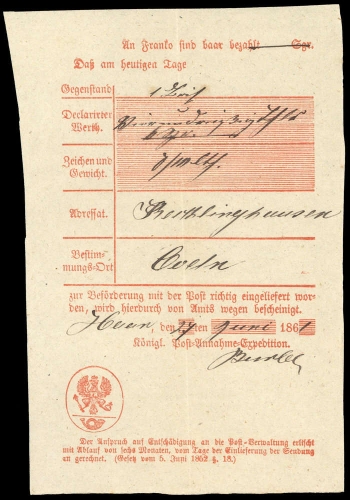 An Franko sind baar bezahlt Sgr.
Daß am heutigen Tage
Gegenstand 1 Brief
Declarirter
Werth.
Zeichen und
Gewicht.
Adressat.
Bestim-
mungs-Ort Coeln
zur Beförderung mit der Post richtig eingeliefert wor-
den, wird hierdurch von Amts wegen bescheinigt.
den ten Juni 1861
Königl. Post-Annahme-Expedition.
Der Anspruch auf Entschädigung an die Post-Verwaltung erlischt
mit Ablauf von sechs Monaten, vom Tage der Einlieferung der Sendung
an gerechnet. (Gesetz vom 5. Juni 1852 §. 18.)